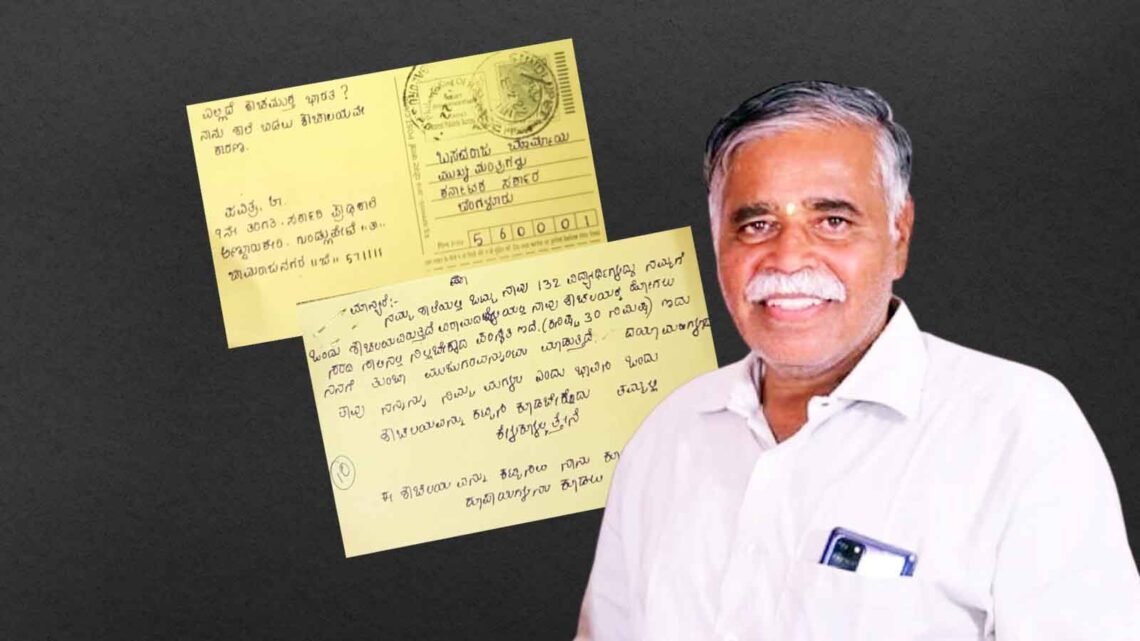 ಎಲ್ಲಿದೆ ಶೌಚಮುಕ್ತ ಭಾರತ?
ನಾನು ಶಾಲೆ ಬಿಡಲು ಶೌಚಾಲಯವೇ
ಕಾರಣ.
ಪವಿತ್ರ.
9ನೇ ತರಗತಿ. ಸರ್ಕಾರಿ ಪ್ರೌಢಶಾಲೆ
ಅಣ್ಣೂರುಕೇರಿ. ಗುಂಡ್ಲುಪೇಟೆ "ತಾ"
ಚಾಮರಾಜನಗರ "ಜಿ" 571111
ಬಸವರಾಜ ಬೊಮ್ಮಾಯಿ
ಮುಖ್ಯ ಮಂತ್ರಿಗಳು
ಕರ್ನಾಟಕ ಸರ್ಕಾರ
ಬೆಂಗಳೂರು
560001
ಮಾನ್ಯರೆ:-
ನಮ್ಮ ಶಾಲೆಯಲ್ಲಿ ಒಟ್ಟು ನಾವು 132 ವಿದ್ಯಾರ್ಥಿಗಳಿದ್ದು ನಮ್ಮಗೆ
ಒಂದು ಶೌಚಾಲಯವಿರುತ್ತದೆ ನಾವು ಶೌಚಾಲಯಕ್ಕೆ ಹೋಗಲು
ಸರದಿ ಸಾಲಿನಲ್ಲಿ ನಿಲ್ಲಬೇಕಾದ ಪರಿಸ್ಥಿತಿ ಇದೆ. (ಕನಿಷ್ಟ 30 ನಿಮಿಷ) ಇದು
ನನಗೆ ತುಂಬಾ ಮುಜುಗರವನ್ನುಂಟು ಮಾಡುತ್ತದೆ.
ತಾವು ನನ್ನನ್ನು ನಿಮ್ಮ ಮಗಳು ಎಂದು ಭಾವಿಸಿ ಒಂದು
ಶೌಚಾಲಯವನ್ನು ಕಟ್ಟಿಸಿ ಕೊಡಬೇಕೆಂದು ತಮ್ಮಲ್ಲಿ
ಕೇಳಿಕೊಳ್ಳುತ್ತೇನೆ
10
ಈ ಶೌಚಾಲಯವನ್ನು ಕಟ್ಟಿಸಲು ನಾನು
ರೂಪಾಯಿಗಳನ್ನು ಕೊಡಲು